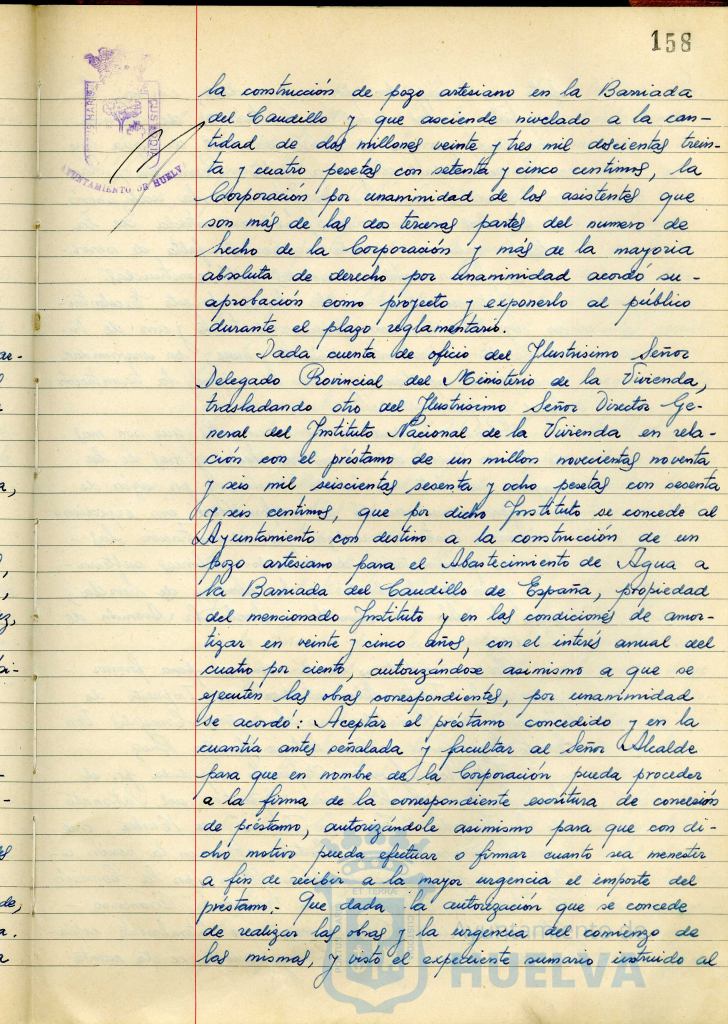 158
la construcción de pozo artesiano en la Barriada
del Caudillo y que asciende nivelado a la can-
tidad de dos millones veinte y tres mil doscientas trein-
ta y cuatro pesetas con setenta y cinco centimos, la
Corporación por unanimidad de los asistentes que
son más de las dos terceras partes del numero de
hecho de la Corporación y más de la mayoria
absoluta de derecho por unanimidad acordó su-
aprobación como proyecto y exponerlo al público
durante el plazo reglamentario.
Dada cuenta de oficio del Ilustrisimo Señor
Delegado Provincial del Ministerio de la Vivienda,
trasladando otro del Ilustrisimo Señor Director Ge-
neral del Instituto Nacional de la Vivienda en rela-
ción con el préstamo de un millon novecientas noventa
y seis mil seiscientas sesenta y ocho pesetas con sesenta
y seis centimos, que por dicho Instituto se concede al
Ayuntamiento con destino a la construcción de un
pozo artesiano para el Abastecimiento de Agua a
la Barriada del Caudillo de España, propiedad
del mencionado Instituto y en las condiciones de amor-
tizar en veinte y cinco años, con el interés anual del
cuatro por ciento, autorizándose asimismo a que se
ejecuten las obras correspondientes, por unanimidad
se acordó: Aceptar el préstamo concedido y en la
cuantía antes señalada y facultar al Señor Alcalde
para que en nombre de la Corporación pueda proceder
a la firma de la correspondiente escritura de concesión
de préstamo, autorizándole asimismo para que con di-
cho motivo pueda efectuar o firmar cuanto sea menester
a fin de recibir a la mayor urgencia el importe del
préstamo.- Que dada la autorización que se concede
de realizar las obras y la urgencia del comienzo de
las mismas, y visto el expediente sumario instruido al
AYUNTAMIENTO DE HUELVA
CUSTODIA
HUELVA